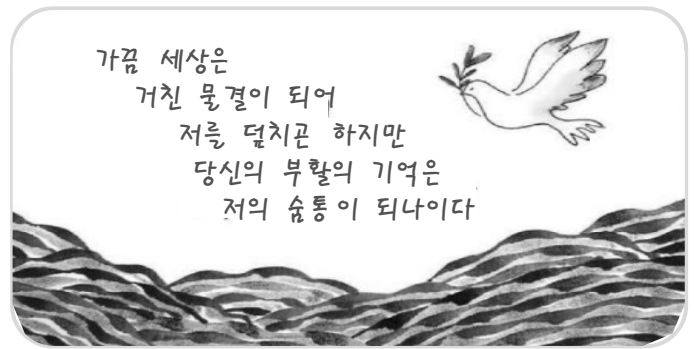 가끔 세상은
거친 물결이 되어
저를 덮치곤 하지만
당신의 부활의 기억은
저의 숨통이 되나이다